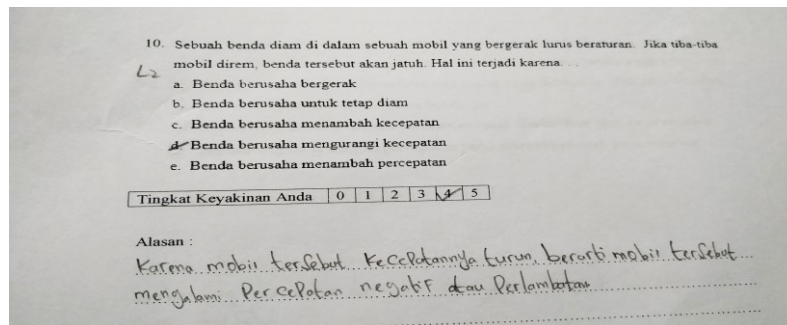 10. Sebuah benda diam di dalam sebuah mobil yang bergerak lurus beraturan. Jika tiba-tiba
mobil direm, benda tersebut akan jatuh. Hal ini terjadi karena. . .
L2
a. Benda berusaha bergerak
b. Benda berusaha untuk tetap diam
c. Benda berusaha menambah kecepatan
d. Benda berusaha mengurangi kecepatan
e. Benda berusaha menambah percepatan
Tingkat Keyakinan Anda 0 1 2 3 4 5
Alasan :
Karena mobil tersebut kecepatannya turun, berarti mobil tersebut
mengalami percepatan negatif atau perlambatan